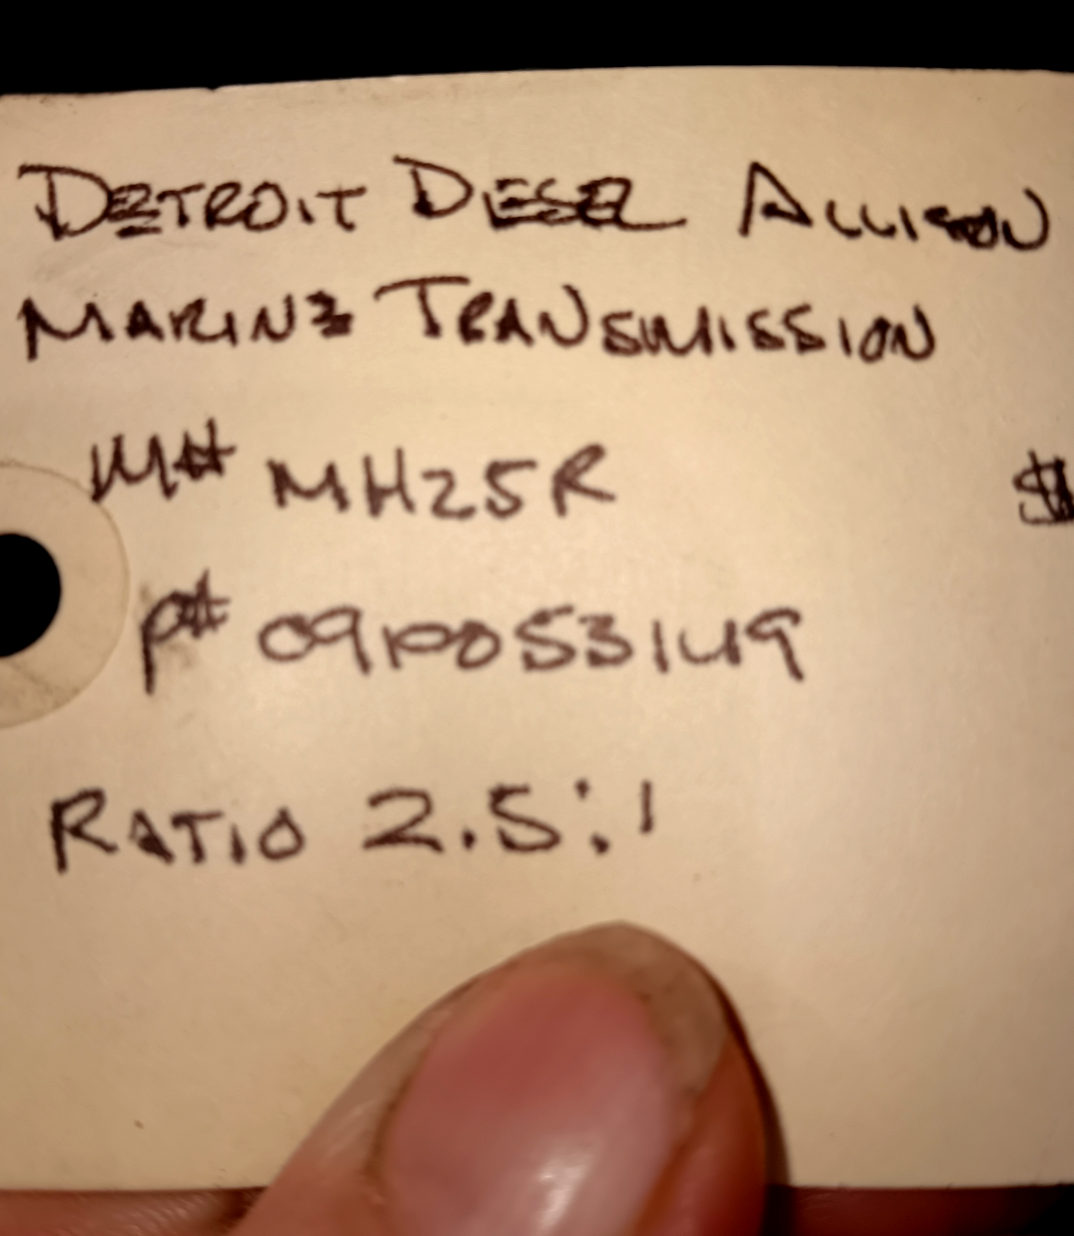 DETROIT DIESEL ALLISON
MARINE TRANSMISSION
M# MH25R
$
P# 0910053149
RATIO 2.5:1